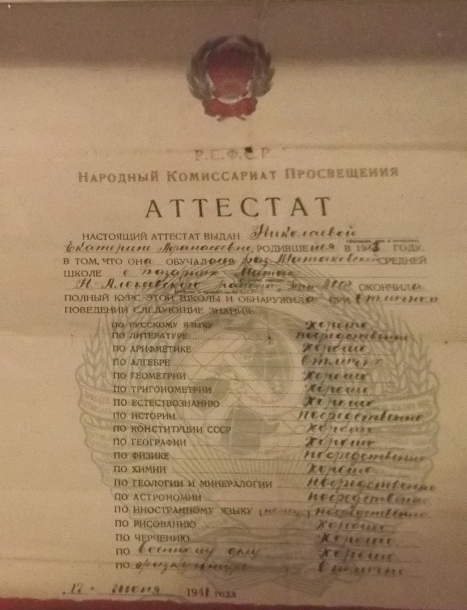 Р.С.Ф.С.Р
НАРОДНЫЙ КОМИССАРИАТ ПРОСВЕЩЕНИЯ
АТТЕСТАТ
НАСТОЯЩИЙ АТТЕСТАТ ВЫДАН Николаевой
Екатерине Афанасевне, РОДИВШЕЙСЯ В 192 ГОДУ,
В ТОМ, ЧТО ОНА ОБУЧАЛАСЬ В СРЕДНЕЙ
ШКОЛЕ с
района ОКОНЧИЛА
ПОЛНЫЙ КУРС ЭТОЙ ШКОЛЫ И ОБНАРУЖИЛА ПРИ отлично
ПОВЕДЕНИИ СЛЕДУЮЩИЕ ЗНАНИЯ:
ПО РУССКОМУ ЯЗЫКУ хорошо
ПО ЛИТЕРАТУРЕ посредственно
ПО АРИФМЕТИКЕ хорошо
ПО АЛГЕБРЕ отлично
ПО ГЕОМЕТРИИ хорошо
ПО ТРИГОНОМЕТРИИ хорошо
ПО ЕСТЕСТВОЗНАНИЮ хорошо
ПО ИСТОРИИ посредственно
ПО КОНСТИТУЦИИ СССР хорошо
ПО ГЕОГРАФИИ хорошо
ПО ФИЗИКЕ посредственно
ПО ХИМИИ хорошо
ПО ГЕОЛОГИИ И МИНЕРАЛОГИИ посредственно
ПО АСТРОНОМИИ посредственно
ПО ИНОСТРАННОМУ ЯЗЫКУ посредственно
ПО РИСОВАНИЮ хорошо
ПО ЧЕРЧЕНИЮ хорошо
ПО военному делу хорошо
ПО физкультуре отлично
июня 1941 года